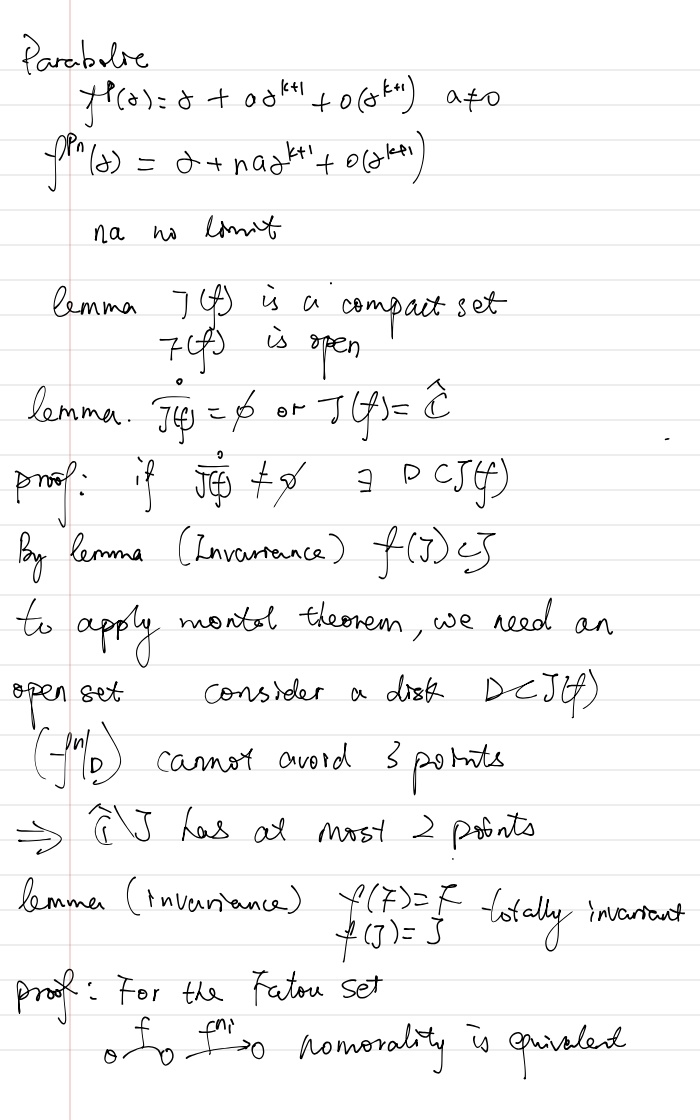 Parabolic
f^p(z) = z + az^{k+1} + o(z^{k+1})  a≠0
f^{pn}(z) = z + naz^{k+1} + o(z^{k+1})
na no limit
lemma J(f) is a compact set
F(f) is open
lemma. \mathring{\overline{J(f)}} = ∅ or J(f) = Ĉ
proof: if \mathring{\overline{J(f)}} ≠ ∅ ∃ D⊂J(f)
By lemma (Invariance) f(J)⊂J
to apply montel theorem, we need an
open set consider a disk D⊂J(f)
(f^n|_D) cannot avoid 3 points
⇒ Ĉ\J has at most 2 points
lemma (invariance) f(F)=F totally invariant
f(J)=J
proof: For the Fatou set
f f^{ni} nomorality is equivalent